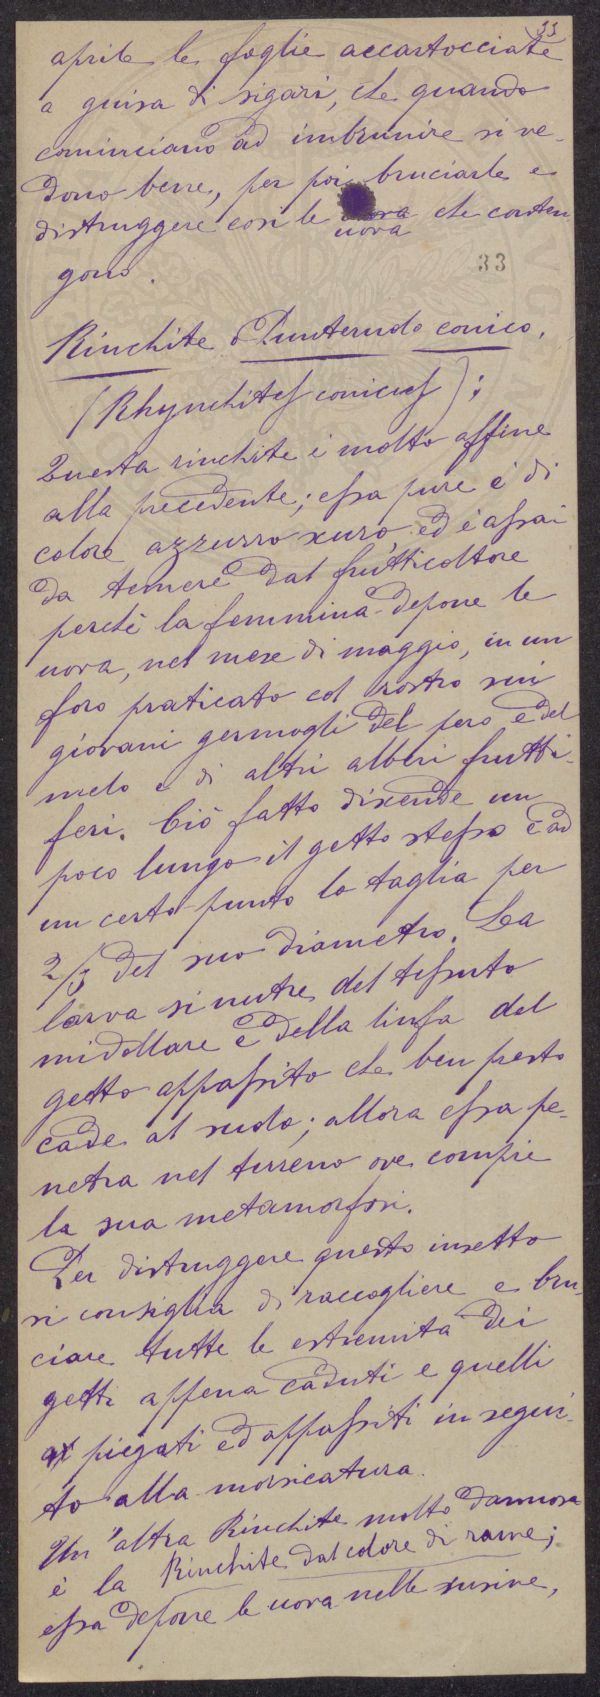 33
aprile le foglie accartocciate
a guisa di sigari, che quando
cominciano ad imbrunire si ve-
dono bene, per poi bruciarle e
distruggere così le uova che conten
uova
gono.
33
Rinchite o Punteruolo conico.
(Rhynchites conicus):
Questa rinchite è molto affine
alla precedente; essa pure è di
colore azzurro scuro, ed è assai
da temere dal frutticoltore
perchè la femmina depone le
uova, nel mese di maggio, in un
foro praticato col rostro sui
giovani germogli del pero e del
melo e di altri alberi frutti-
feri. Ciò fatto discende un
poco lungo il getto stesso e ad
un certo punto lo taglia per
2/3 del suo diametro. La
larva si nutre del tessuto
midollare e della linfa del
getto appassito che ben presto
cade al suolo; allora essa pe-
netra nel terreno ove compie
la sua metamorfosi.
Per distruggere questo insetto
si consiglia di raccogliere e bru-
ciare tutte le estremità dei
getti appena caduti e quelli
piegati ed appassiti in segui-
to alla morsicatura.
Un'altra Rinchite molto dannosa
è la Rinchite dal colore di rame;
essa depone le uova nelle susine,